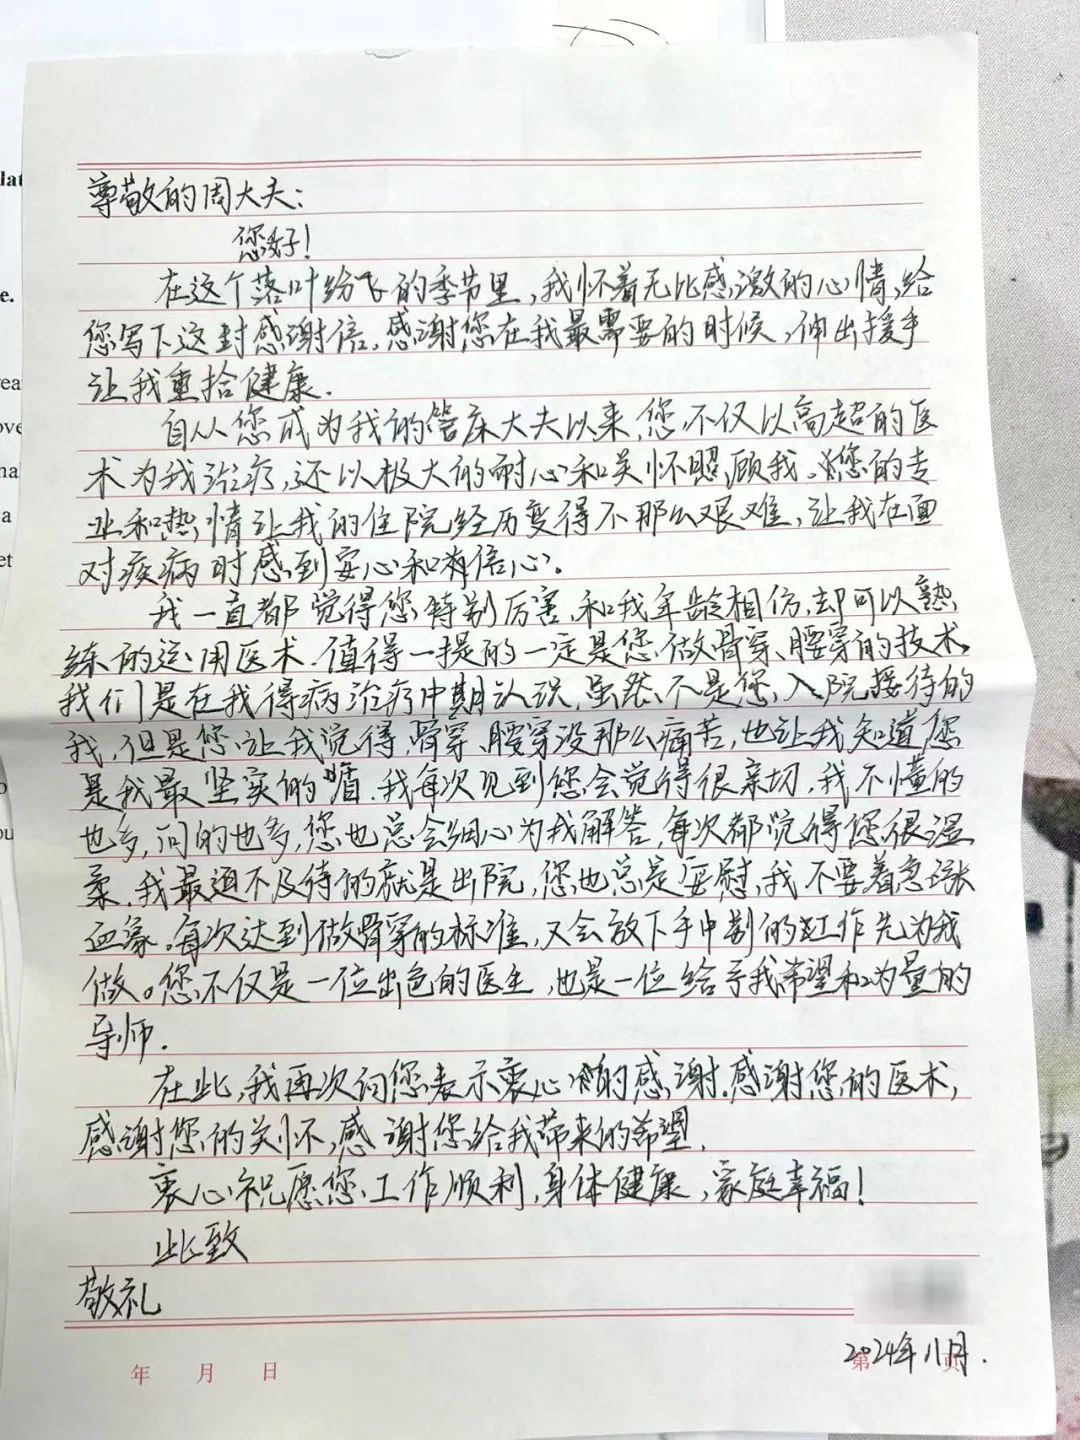 尊敬的周大夫：
您好！
在这个落叶纷飞的季节里，我怀着无比感激的心情，给
您写下这封感谢信，感谢您在我最需要的时候，伸出援手
让我重拾健康．
自从您成为我的管床大夫以来，您不仅以高超的医
术为我治疗，还以极大的耐心和关怀照顾我。您的专
业和热情让我的住院经历变得不那么艰难，让我在面
对疾病时感到安心和有信心。
我一直都觉得您特别厉害，和我年龄相仿，却可以熟
练的运用医术．值得一提的一定是您做骨穿、腰穿的技术，
我们是在我得病治疗中期认识，虽然不是您入院接待的
我，但是您让我觉得，骨穿、腰穿没那么痛苦，也让我知道您
是我最坚实的盾．我每次见到您会觉得很亲切，我不懂的
也多，问的也多，您也总会细心为我解答，每次都觉得您很温
柔．我最迫不及待的就是出院，您也总是安慰我不要着急涨
血象。每次达到做骨穿的标准，又会放下手中别的工作先为我
做。您不仅是一位出色的医生，也是一位给予我希望和力量的
导师．
在此，我再次向您表示衷心的感谢．感谢您的医术，
感谢您的关怀，感谢您给我带来的希望．
衷心祝愿您工作顺利，身体健康，家庭幸福！
此致
敬礼
2024年11月．
年 月 日
第 页